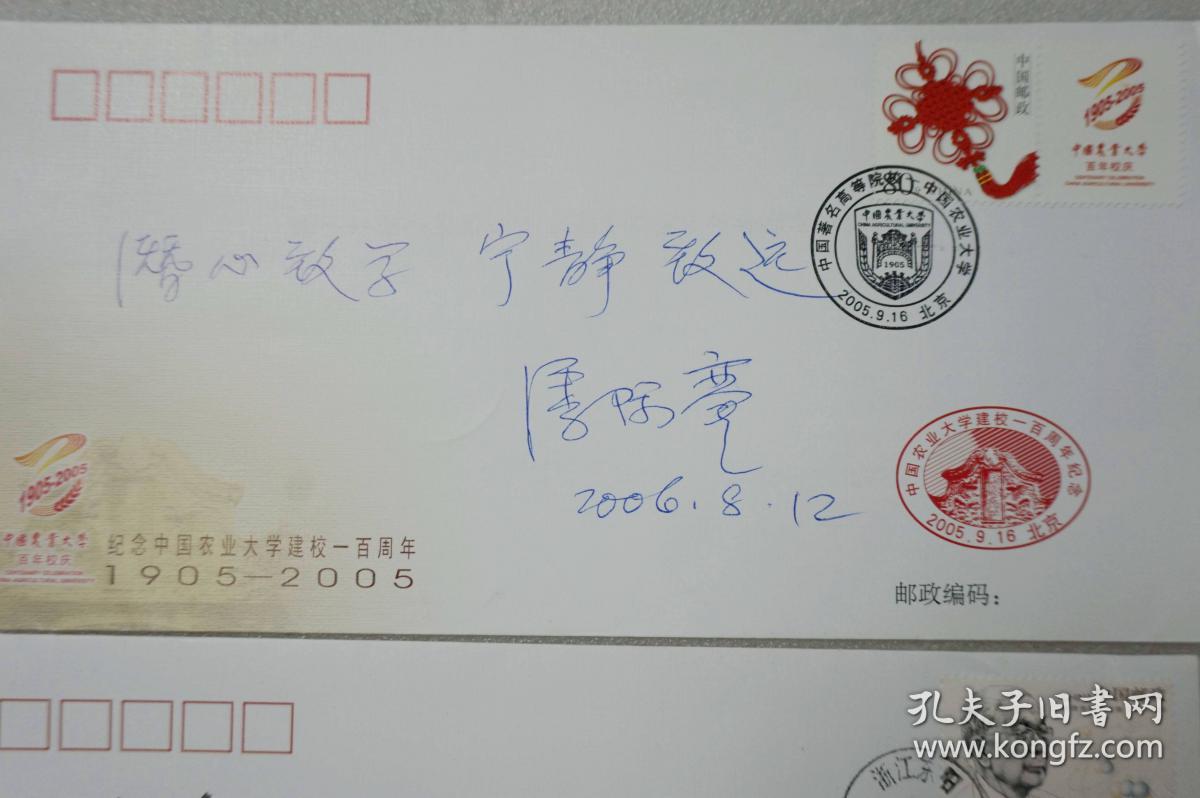 中国邮政
80
1905-2005
中国农业大学
百年校庆
CENTENARY CELEBRATION
CHINA AGRICULTURAL UNIVERSITY
中国著名高等院校 中国农业大学
中国农业大学
CHINA AGRICULTURAL UNIVERSITY
1905
2005.9.16 北京
潜心致学 宁静致远
2006.8.12
中国农业大学建校一百周年纪念
2005.9.16 北京
1905-2005
中国农业大学
百年校庆
CENTENARY CELEBRATION
CHINA AGRICULTURAL UNIVERSITY
纪念中国农业大学建校一百周年
1905—2005
邮政编码：
浙江东
孔夫子旧书网
www.kongfz.com